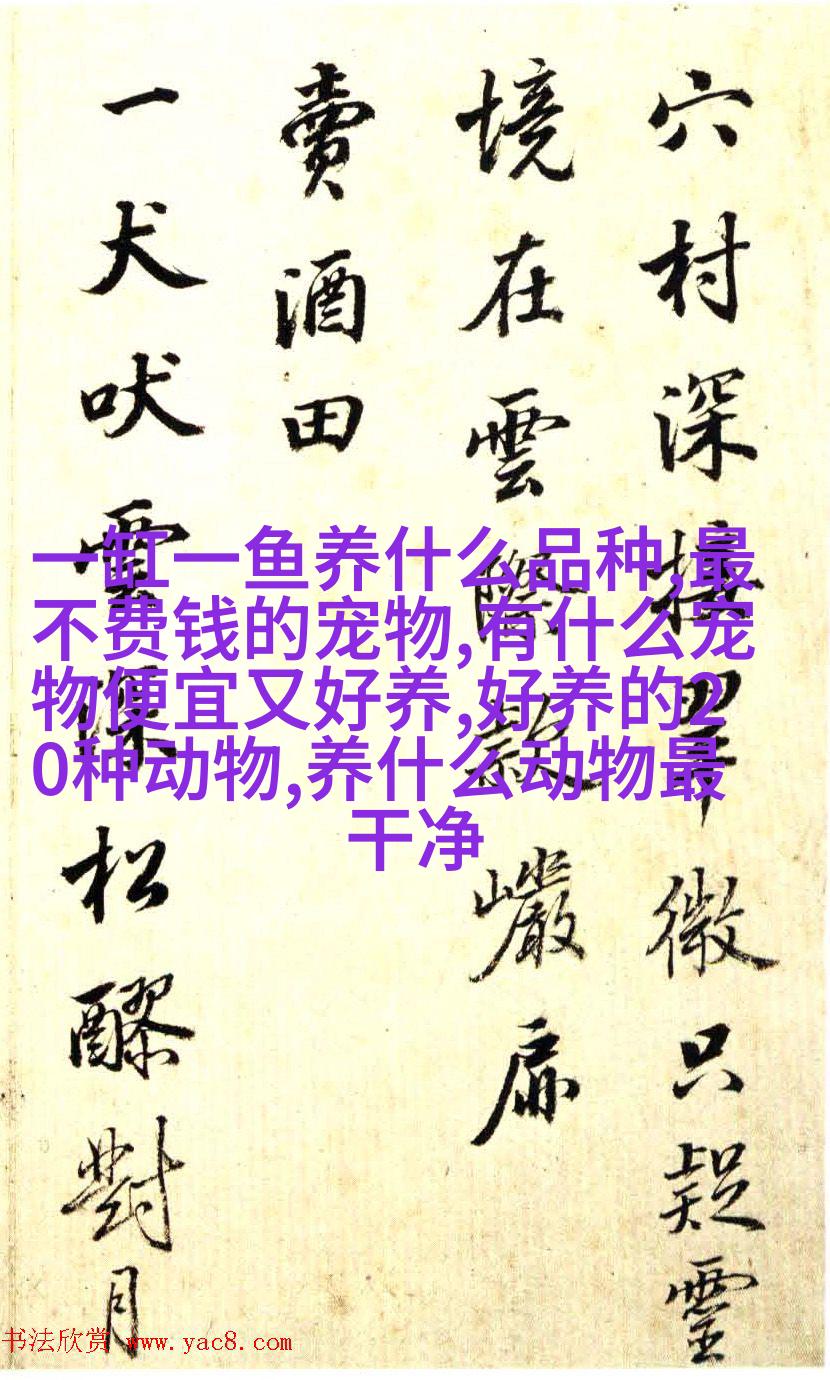 穴村深接翠微只疑靈
境在雲際款巖扉
賣酒田
一犬吠雲深松醪對月
一缸一鱼养什么品种,最
不费钱的宠物,有什么宠
物便宜又好养,好养的2
0种动物,养什么动物最
干净
书法欣赏 www.yac8.com